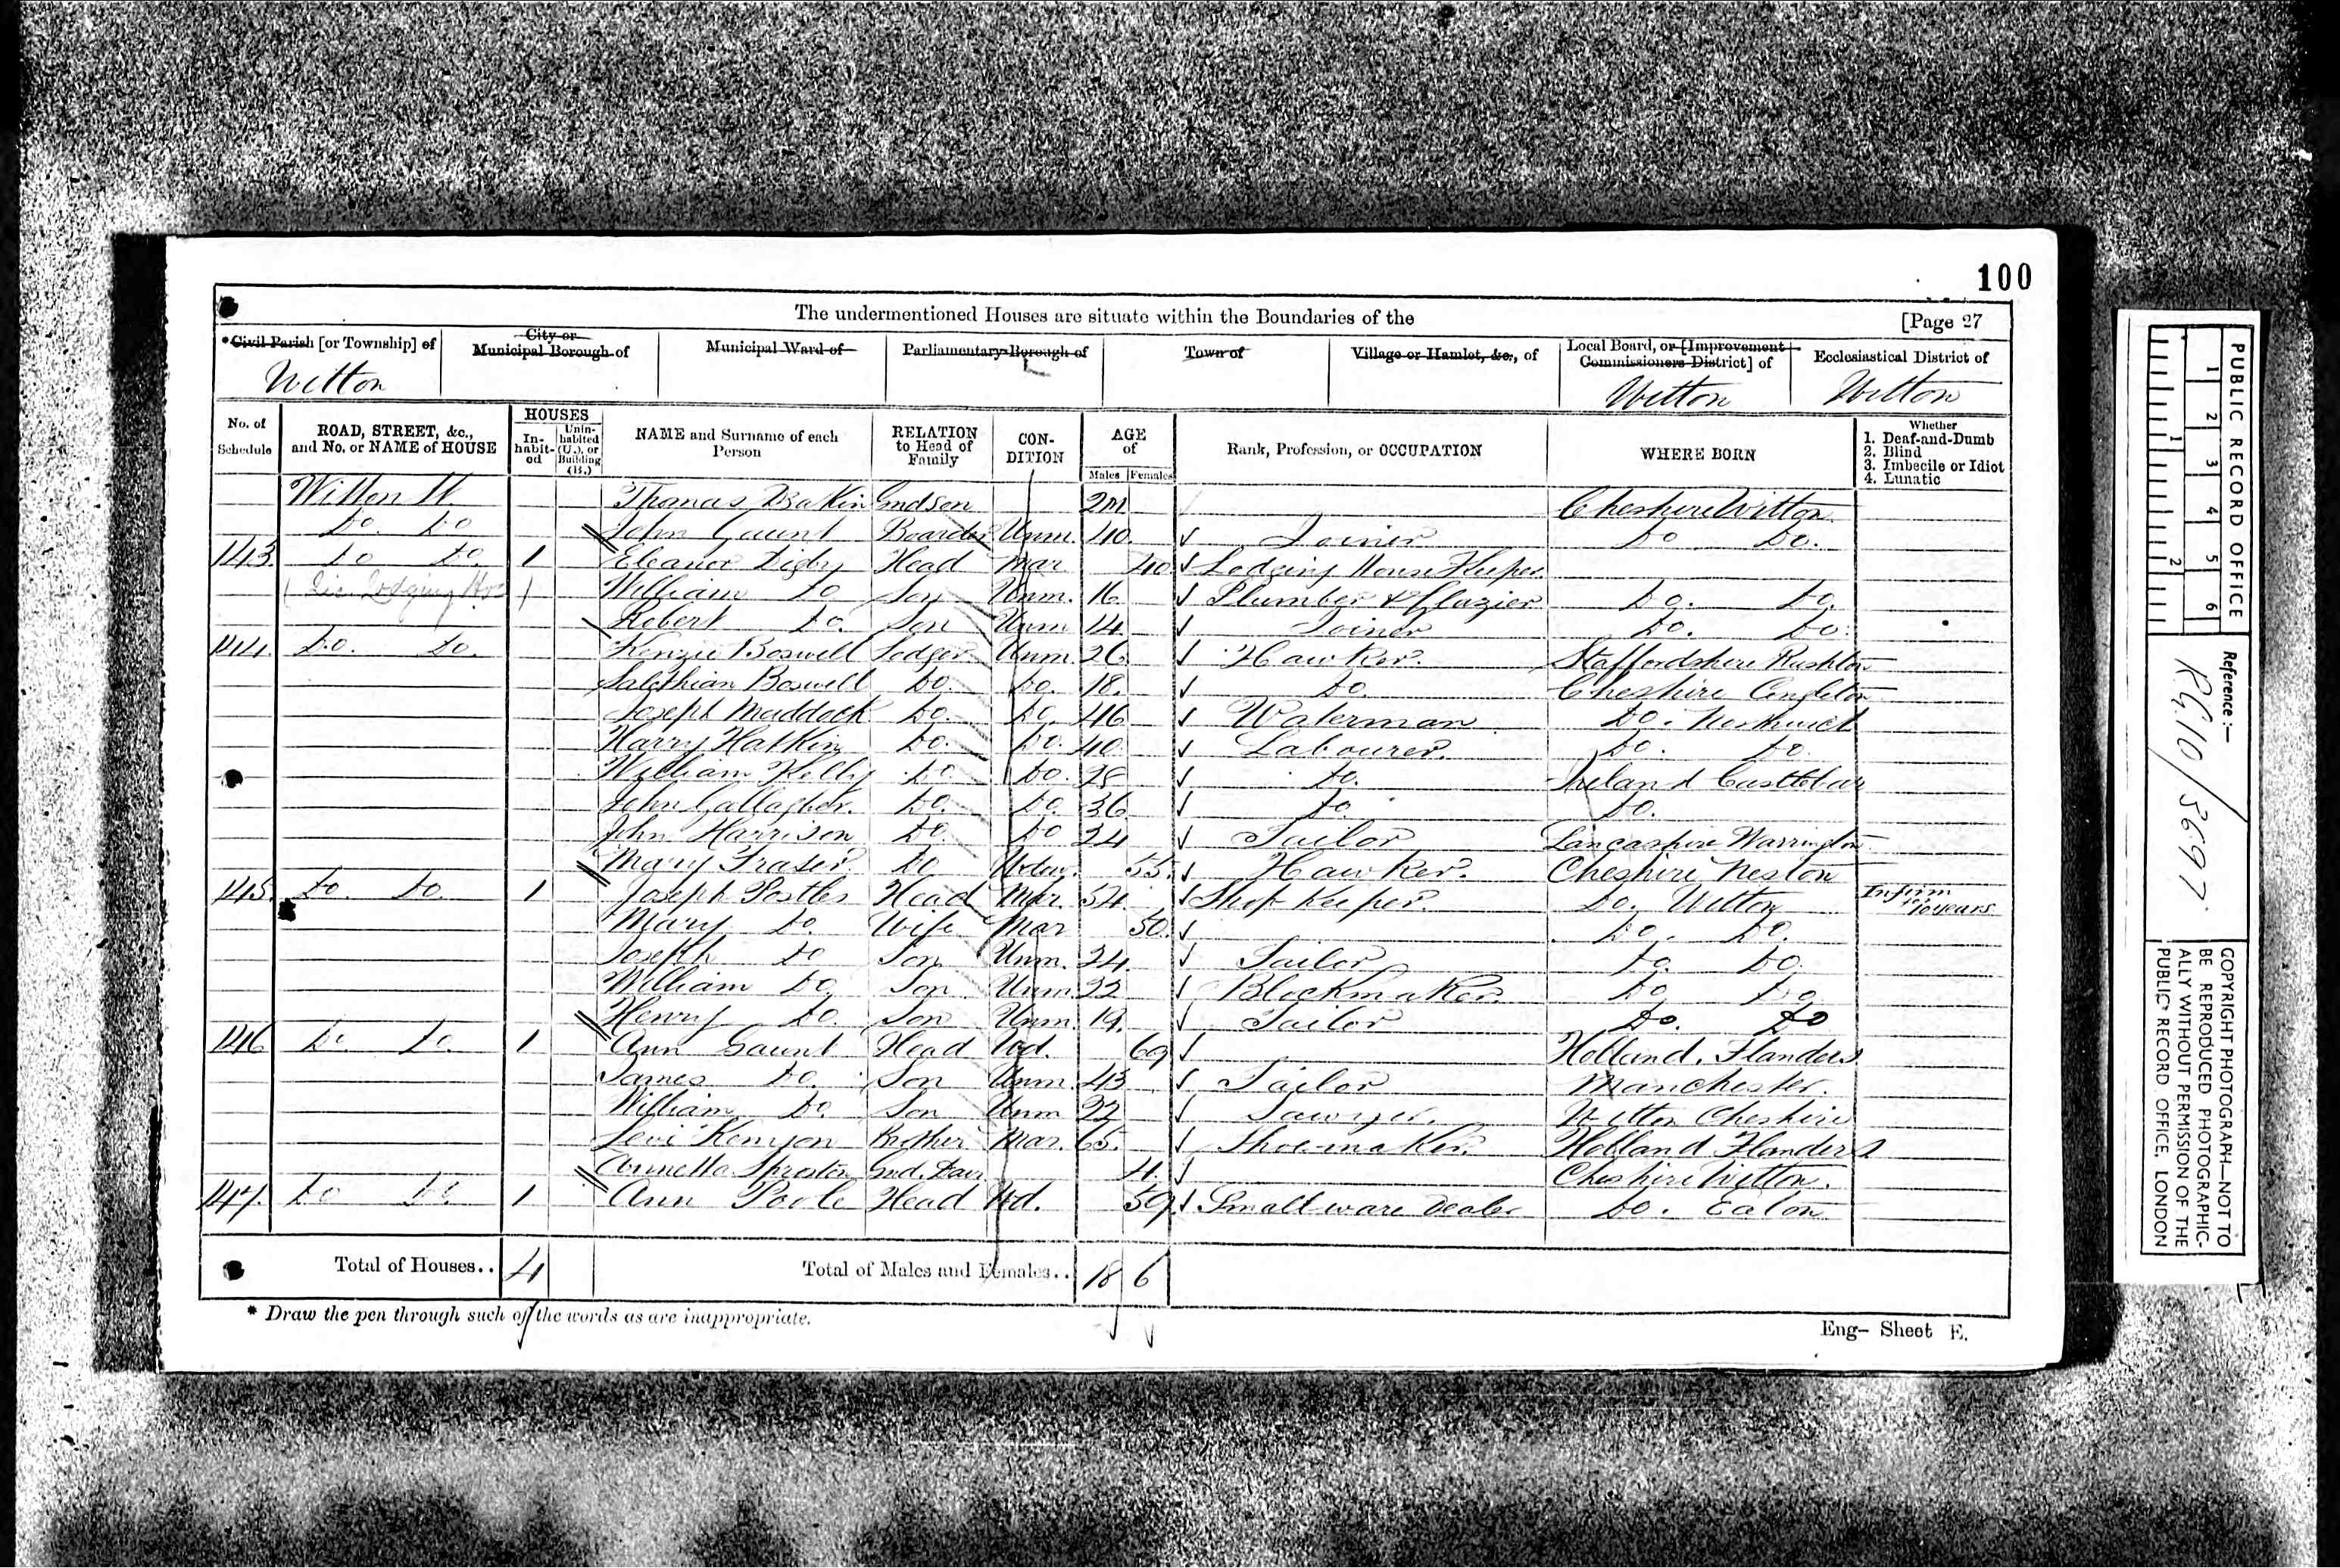 100
The undermentioned Houses are situate within the Boundaries of the [Page 27
*Civil Parish [or Township] of City or Municipal Borough of Municipal Ward of Parliamentary Borough of Town of Village or Hamlet, &c., of Local Board, or [Improvement Commissioners District] of Ecclesiastical District of
Witton Witton Witton
No. of Schedule ROAD, STREET, &c., and No. or NAME of HOUSE HOUSES In-habit-ed Unin-habited (U.), or Building (B.) NAME and Surname of each Person RELATION to Head of Family CON-DITION AGE of Males Females Rank, Profession, or OCCUPATION WHERE BORN Whether 1. Deaf-and-Dumb 2. Blind 3. Imbecile or Idiot 4. Lunatic
Witton St Thomas Grndson 2m Cheshire Witton
Do Do John Gaunt Boarder Unm. 40 Joiner Do Do.
143 Do Do. 1 Eleanor Digby Head Mar 40 Lodging House Keeper
Lodging William Do Son Unm. 16 Plumber & Glazier Do. Do.
Robert Do. Son Unm 14 Joiner Do. Do.
144 Do. Do. Kenzie Boswell Lodger Unm. 26 Hawker. Staffordshire Rushton
Boswell Do. Do. 18. Do Cheshire Congleton
Joseph Maddock Do. Do. 46 Waterman Do. Northwich
Harry Hatkin Do. Do. 40 Labourer. Do. Do
William Kelly Do Do. 28 Do. Ireland Castlebar
John Gallagher. Do. Do. 36 Do Do.
John Harrison Do Do 34 Tailor Lancashire Warrington
Mary Fraser Do Widow. 55. Hawker. Cheshire Neston
145. Do. Do. 1 Joseph Postles Head Mar. 54 Shop Keeper. Do. Witton Infirm years
Mary Do. Wife Mar 50. Do. Do.
Joseph Do Son Unm. 24 Tailor Do. Do.
William Do Son Unm 22 Blockmaker. Do Do
Henry Do. Son Unm. 19. Tailor Do. Do
146 Do. Do. 1 Ann Gaunt Head Wd. 69 Holland. Flanders
James Do. Son Unm. 43 Tailor Manchester.
William Do. Son Unm 22 Sawyer. Witton Cheshire
Levi Kenyon Brother Mar. 65. Shoemaker. Holland Flanders
Grnd. Daur 4 Cheshire Witton.
147. Do Do. 1 Ann Poole Head Wd. 59 Smallware Dealer Do. Eaton
Total of Houses.. 4 Total of Males and Females.. 18 6
* Draw the pen through such of the words as are inappropriate.
Eng- Sheet E.
PUBLIC RECORD OFFICE
1 2 3 4 5 6
1 2
Reference:-
RG10/3697
COPYRIGHT PHOTOGRAPH—NOT TO
BE REPRODUCED PHOTOGRAPHIC-
ALLY WITHOUT PERMISSION OF THE
PUBLIC RECORD OFFICE, LONDON